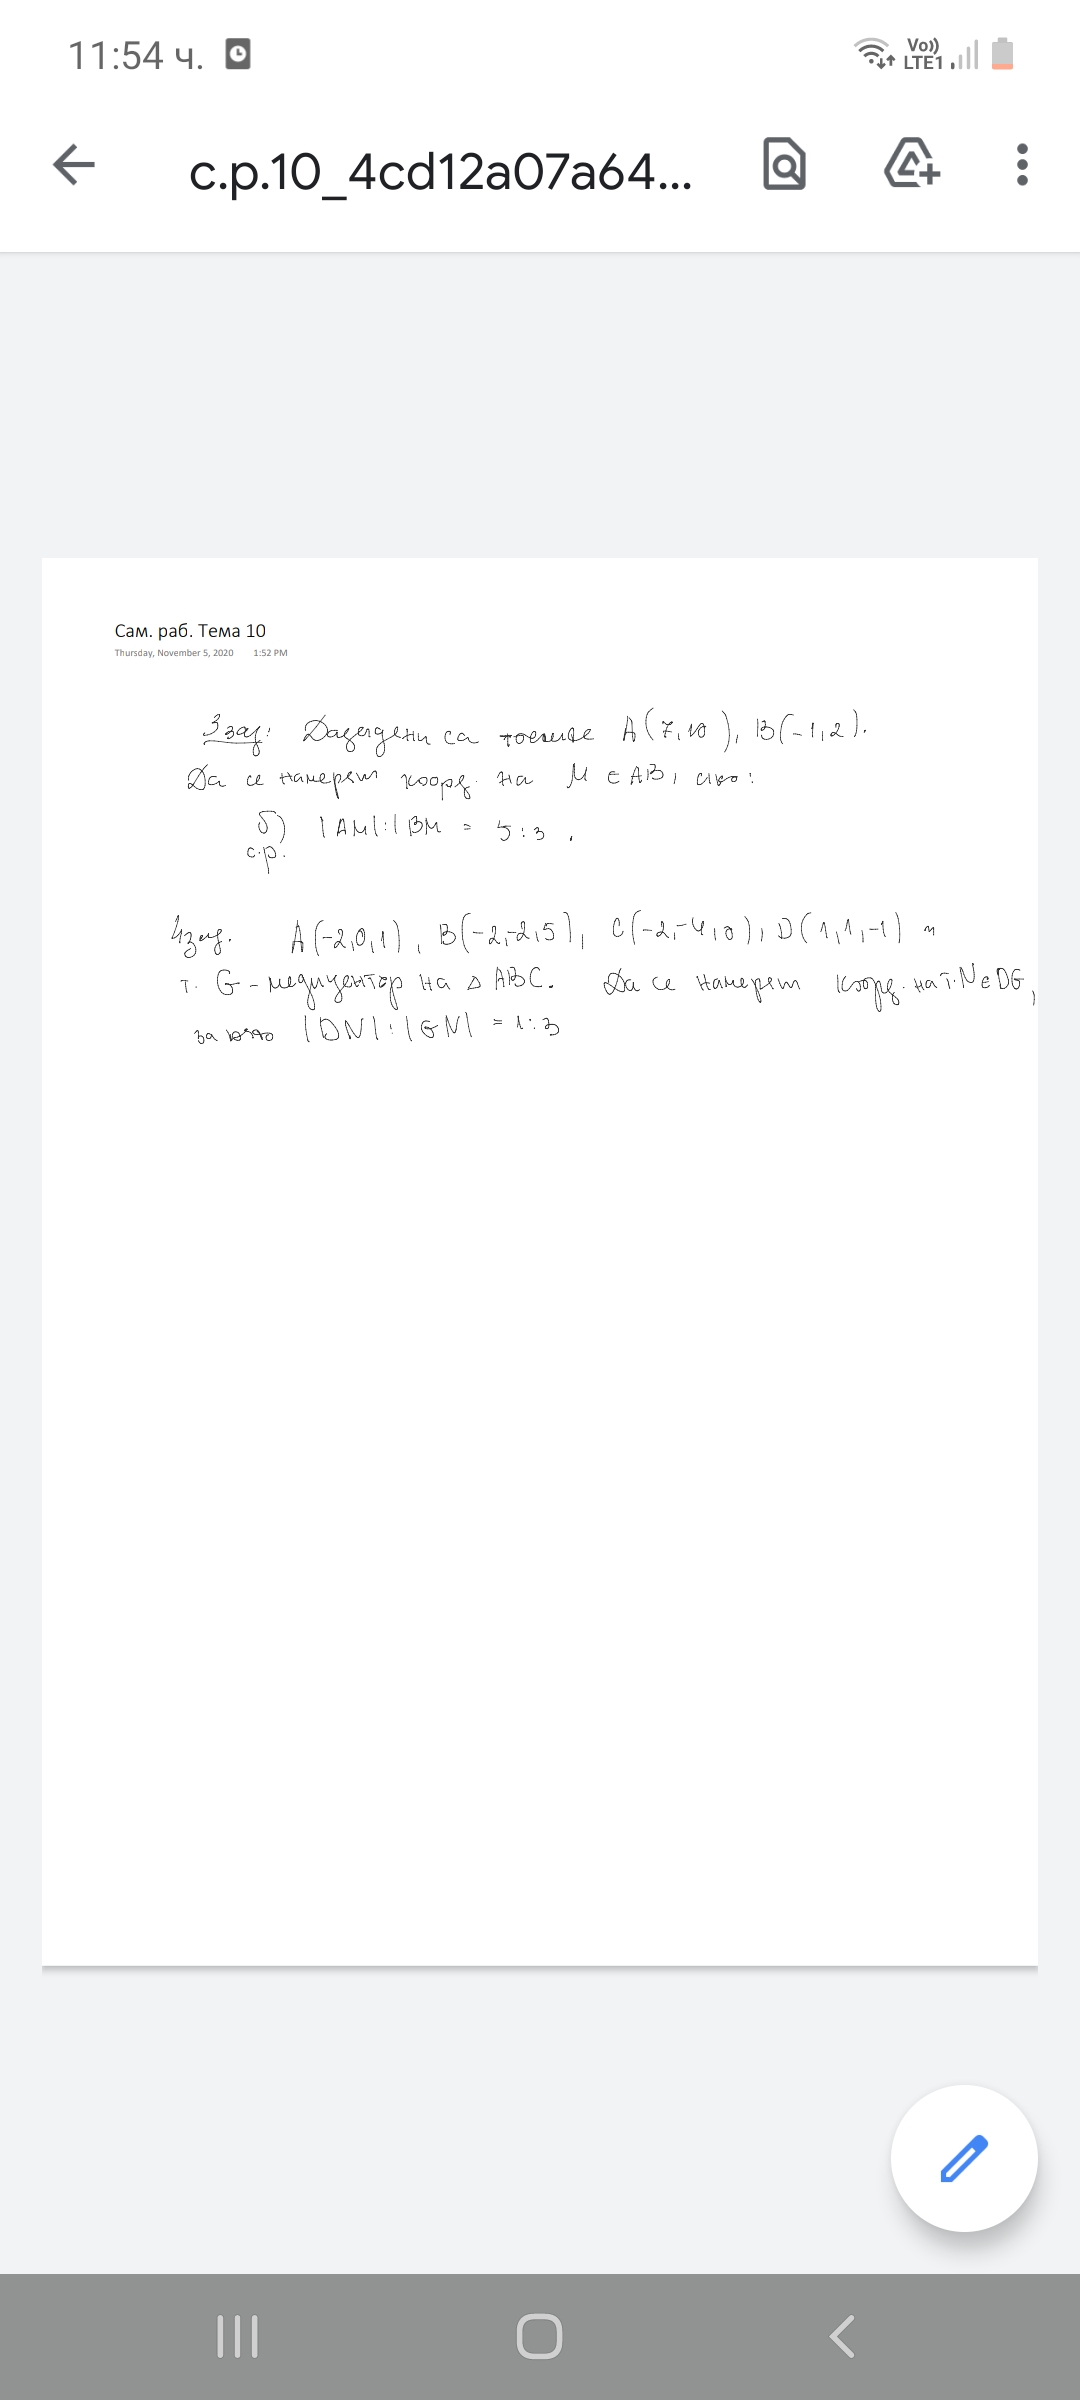 11:54 ч.
Vo)) LTE1
c.p.10_4cd12a07a64...
Сам. раб. Тема 10
Thursday, November 5, 2020 1:52 PM
3 зад: Дададени са точките A(7,10), B(-1,2).
Да се намерят коорд. на M ∈ AB, ако:
б) |AM|:|BM = 5:3.
с.р.
4 зад. A(-2,0,1), B(-2,-2,5), C(-2,-4,0), D(1,1,-1) и
т. G - медицентър на △ ABC. Да се намерят коорд. на т. N ∈ DG,
за която |DN|:|GN| = 1:3